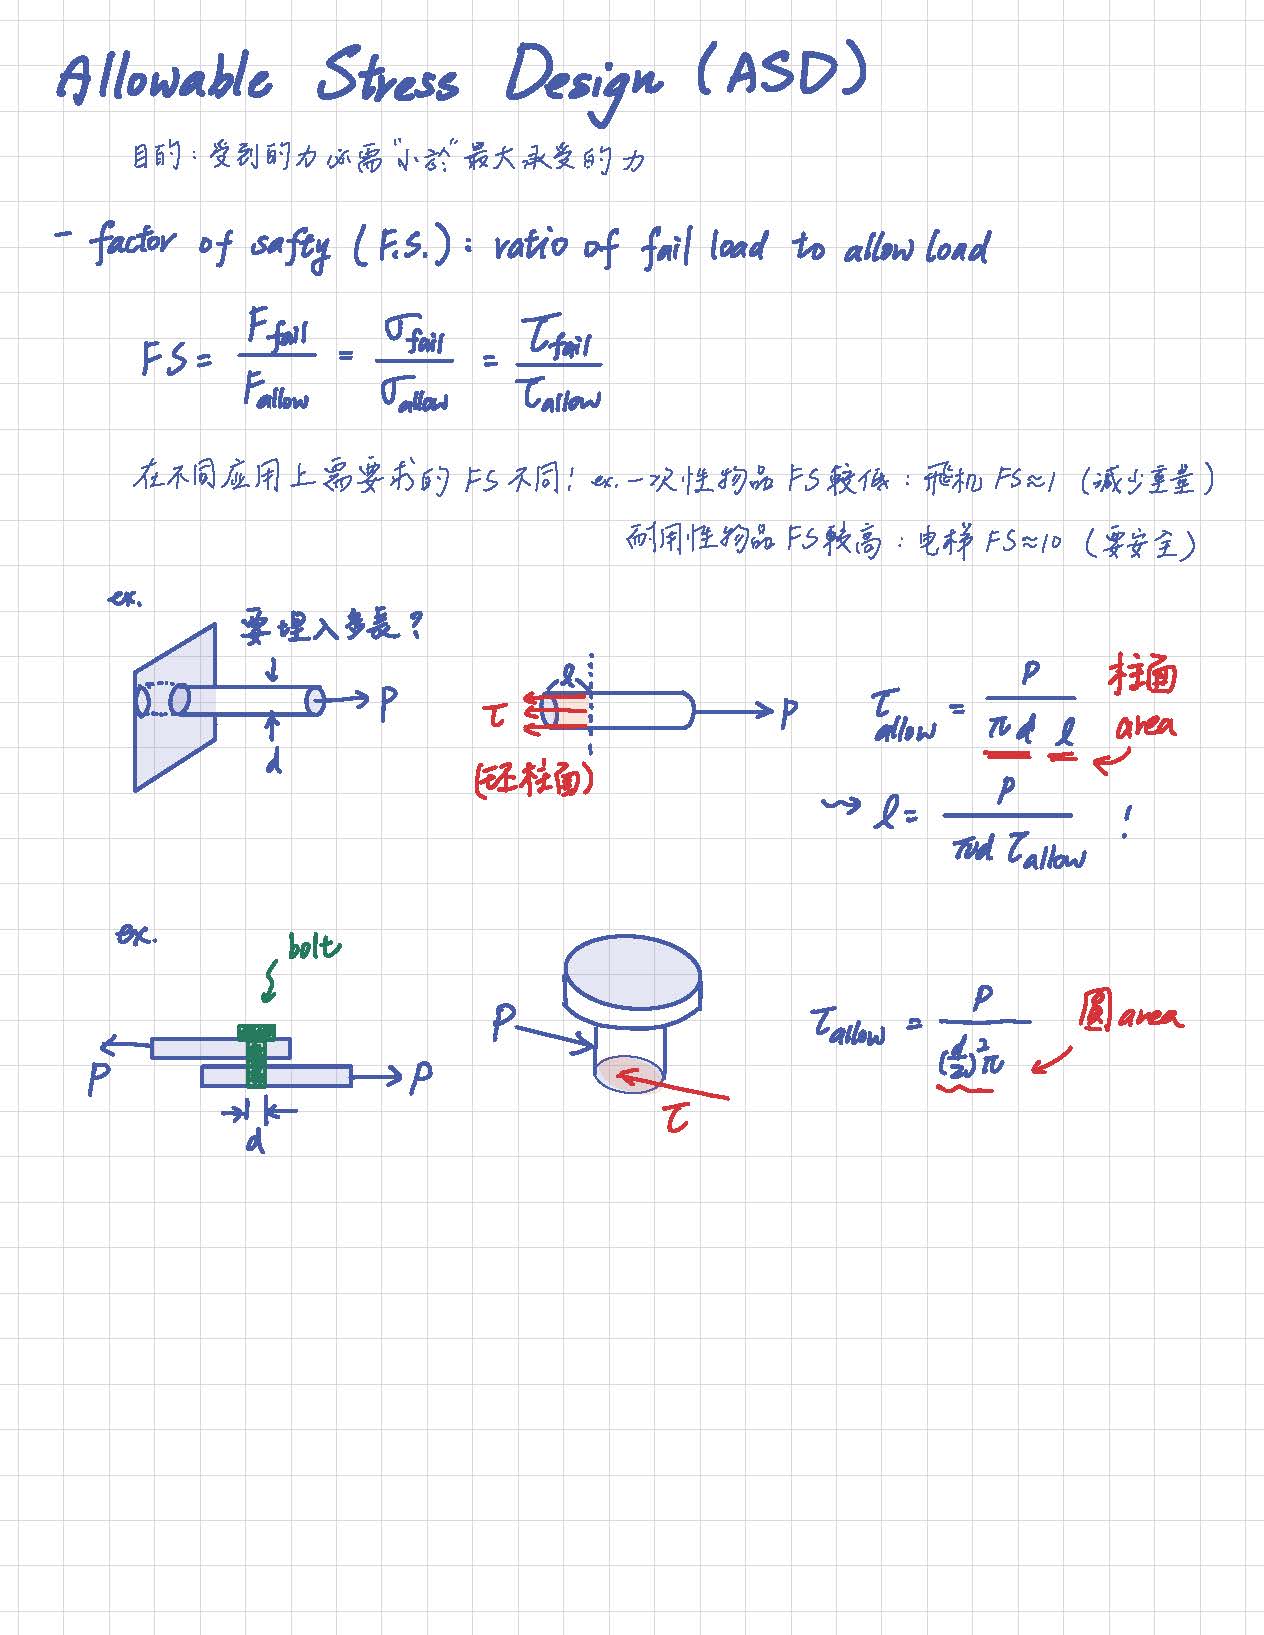 Allowable Stress Design (ASD)
目的：受到的力必需“小於”最大承受的力
- factor of safty (F.S.) : ratio of fail load to allow load
FS = F_fail / F_allow = σ_fail / σ_allow = τ_fail / τ_allow
在不同应用上需要求的 FS 不同! ex. 一次性物品 FS 較低：飛机 FS≈1 (減少重量)
耐用性物品 FS 較高：电梯 FS≈10 (要安全)
ex.
要埋入多長?
P
d
l
τ
P
(在柱面)
τ_allow = P / (π d l)
柱面
area
⇝ l = P / (πd τ_allow) !
ex.
bolt
P
P
d
P
τ
τ_allow = P / ((d/2)²π)
圓 area